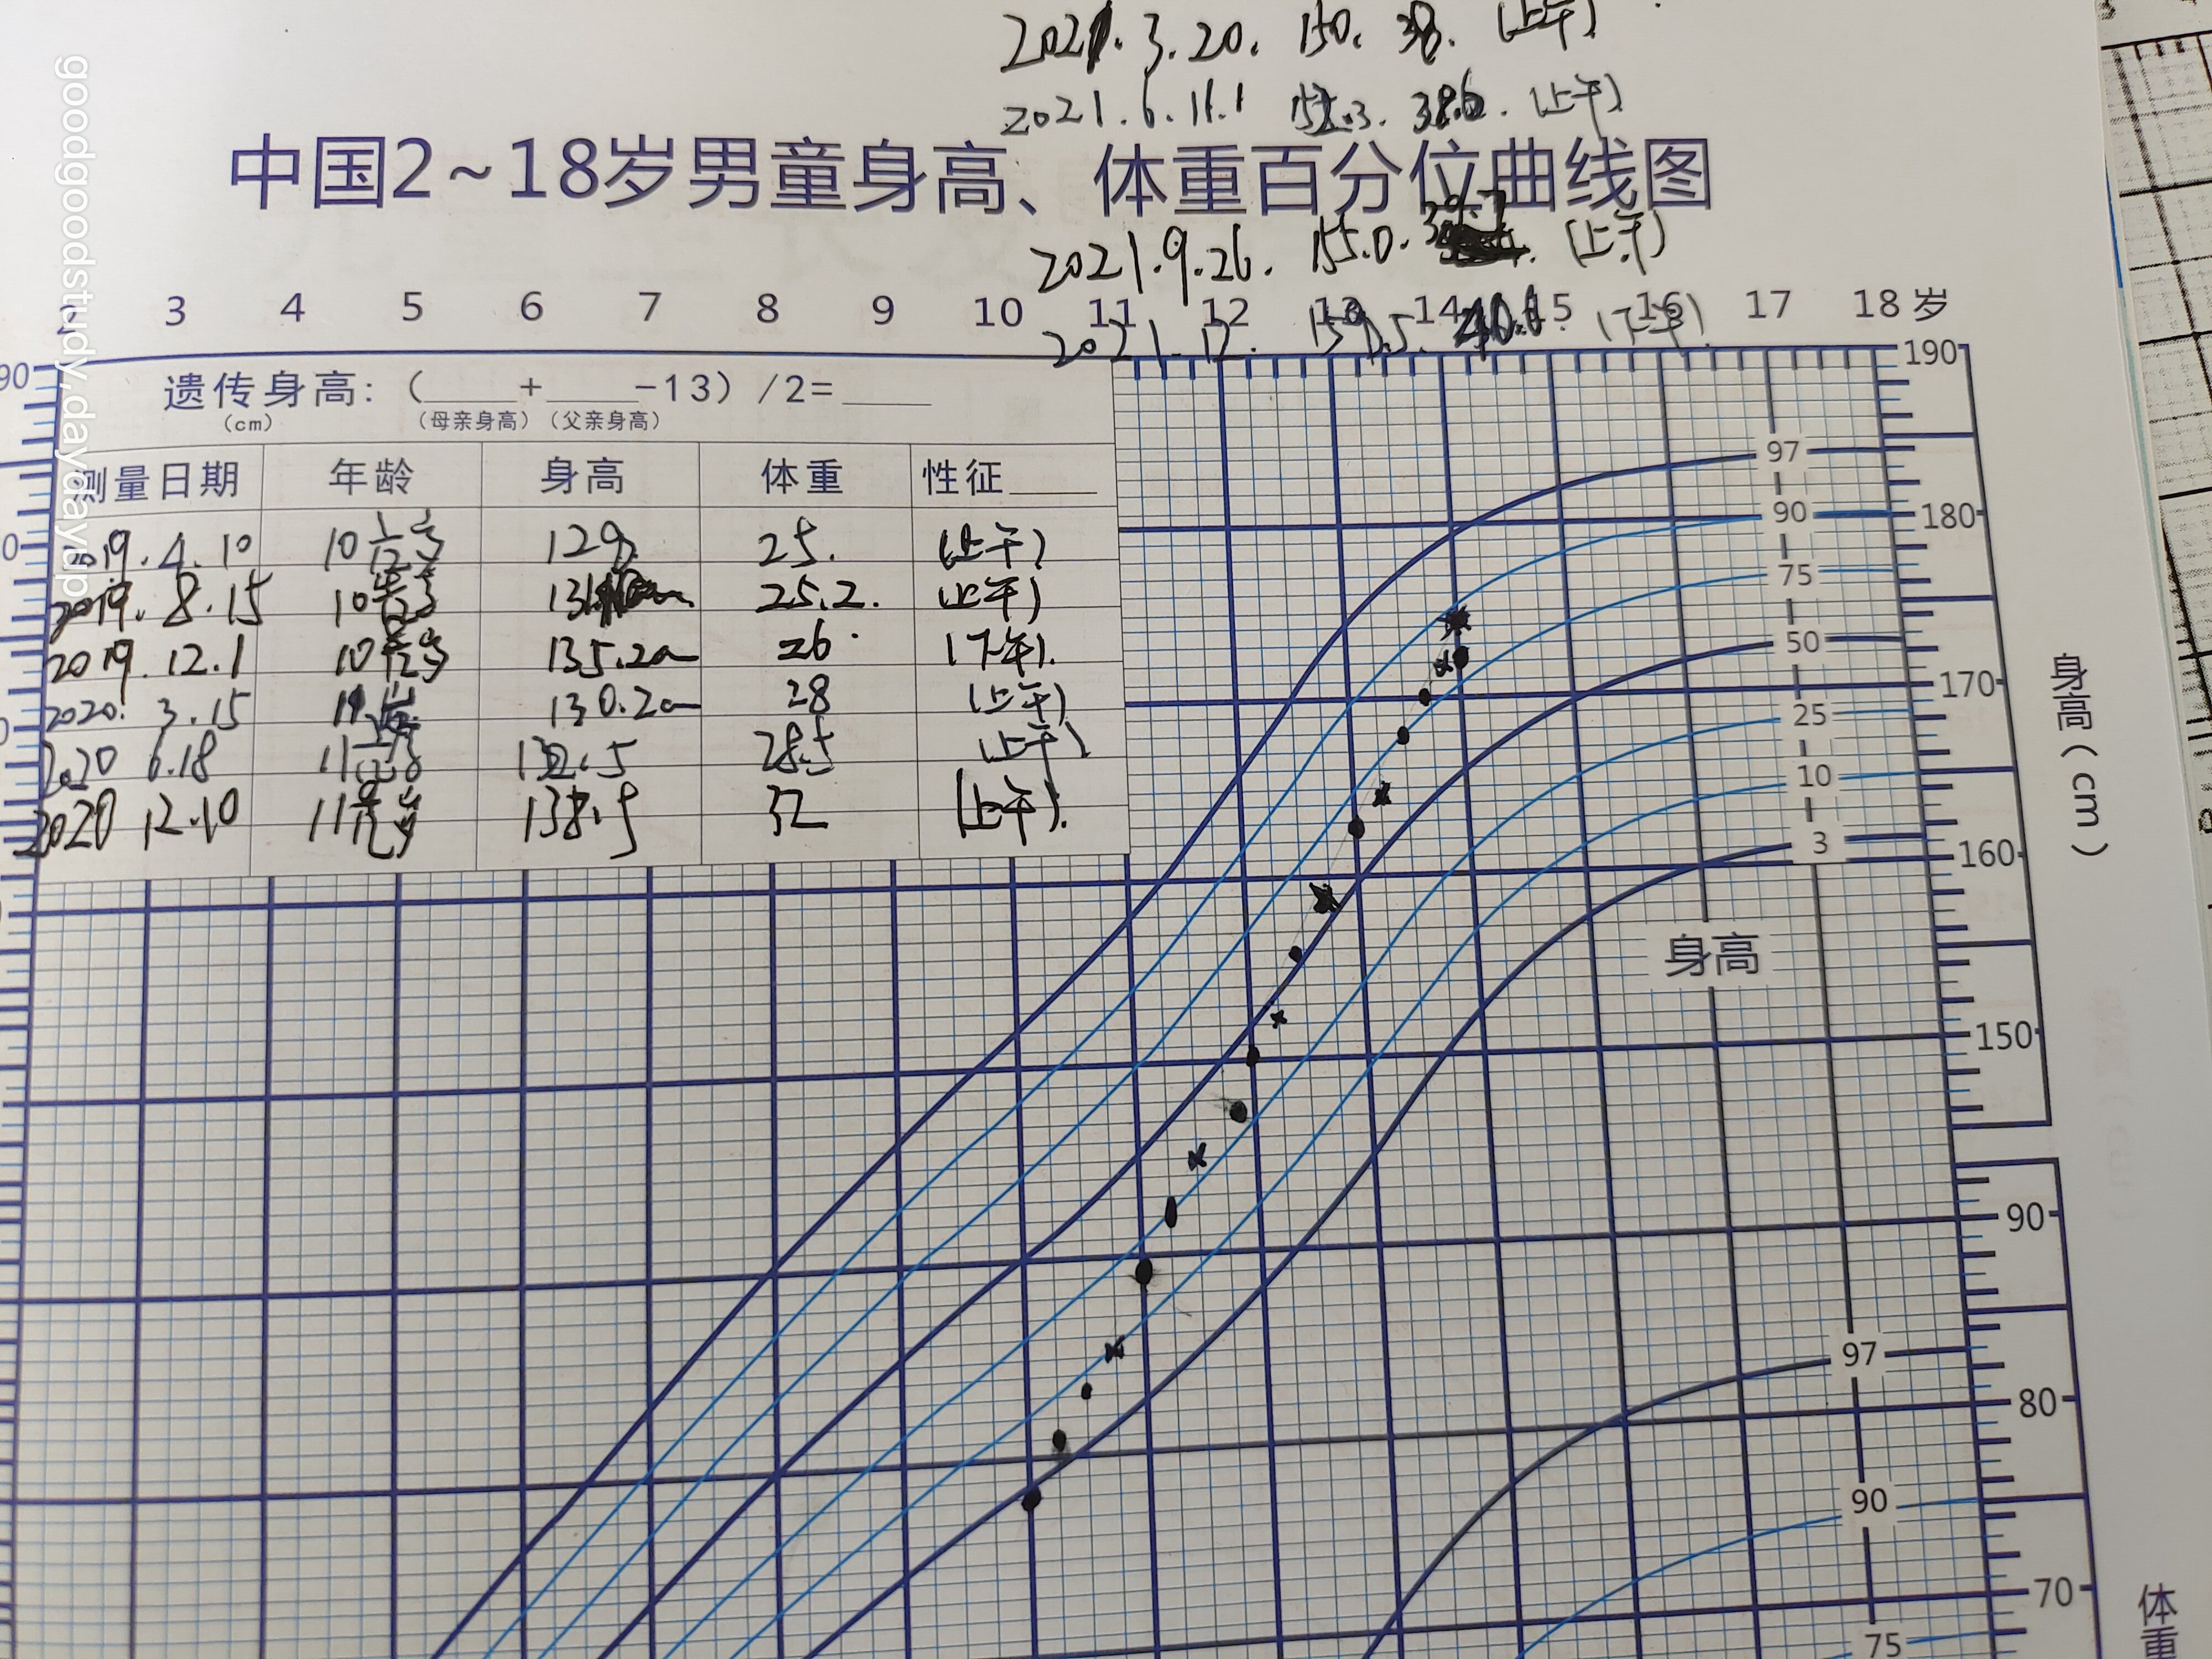 2021.3.20. 150. 38. (上午)
2021.6.11.1 152.3. 38.6. (上午)
中国2~18岁男童身高、体重百分位曲线图
2021.9.26. 155.0. (上午)
3 4 5 6 7 8 9 10 11 12 13 14 15 16 17 18 岁
2021.12. 159.5. 40.6. (下午)
遗传身高: (____+____-13) /2=____
(cm) (母亲身高) (父亲身高)
测量日期 年龄 身高 体重 性征____
2019.4.10 10 1/12岁 129 25. (上午)
2019.8.15 25.2. (上午)
2019.12.1 135.2cm 26 (下午).
2020. 3.15 130.2cm 28 (上午)
2020 6.18 132.5 28.5 (上午)
2020 12.10 138.5 32 (上午).
190
180
170
160
150
身高(cm)
97
90
75
50
25
10
3
身高
90
80
70
97
90
75
体重
goodgoodstudy.daydayup